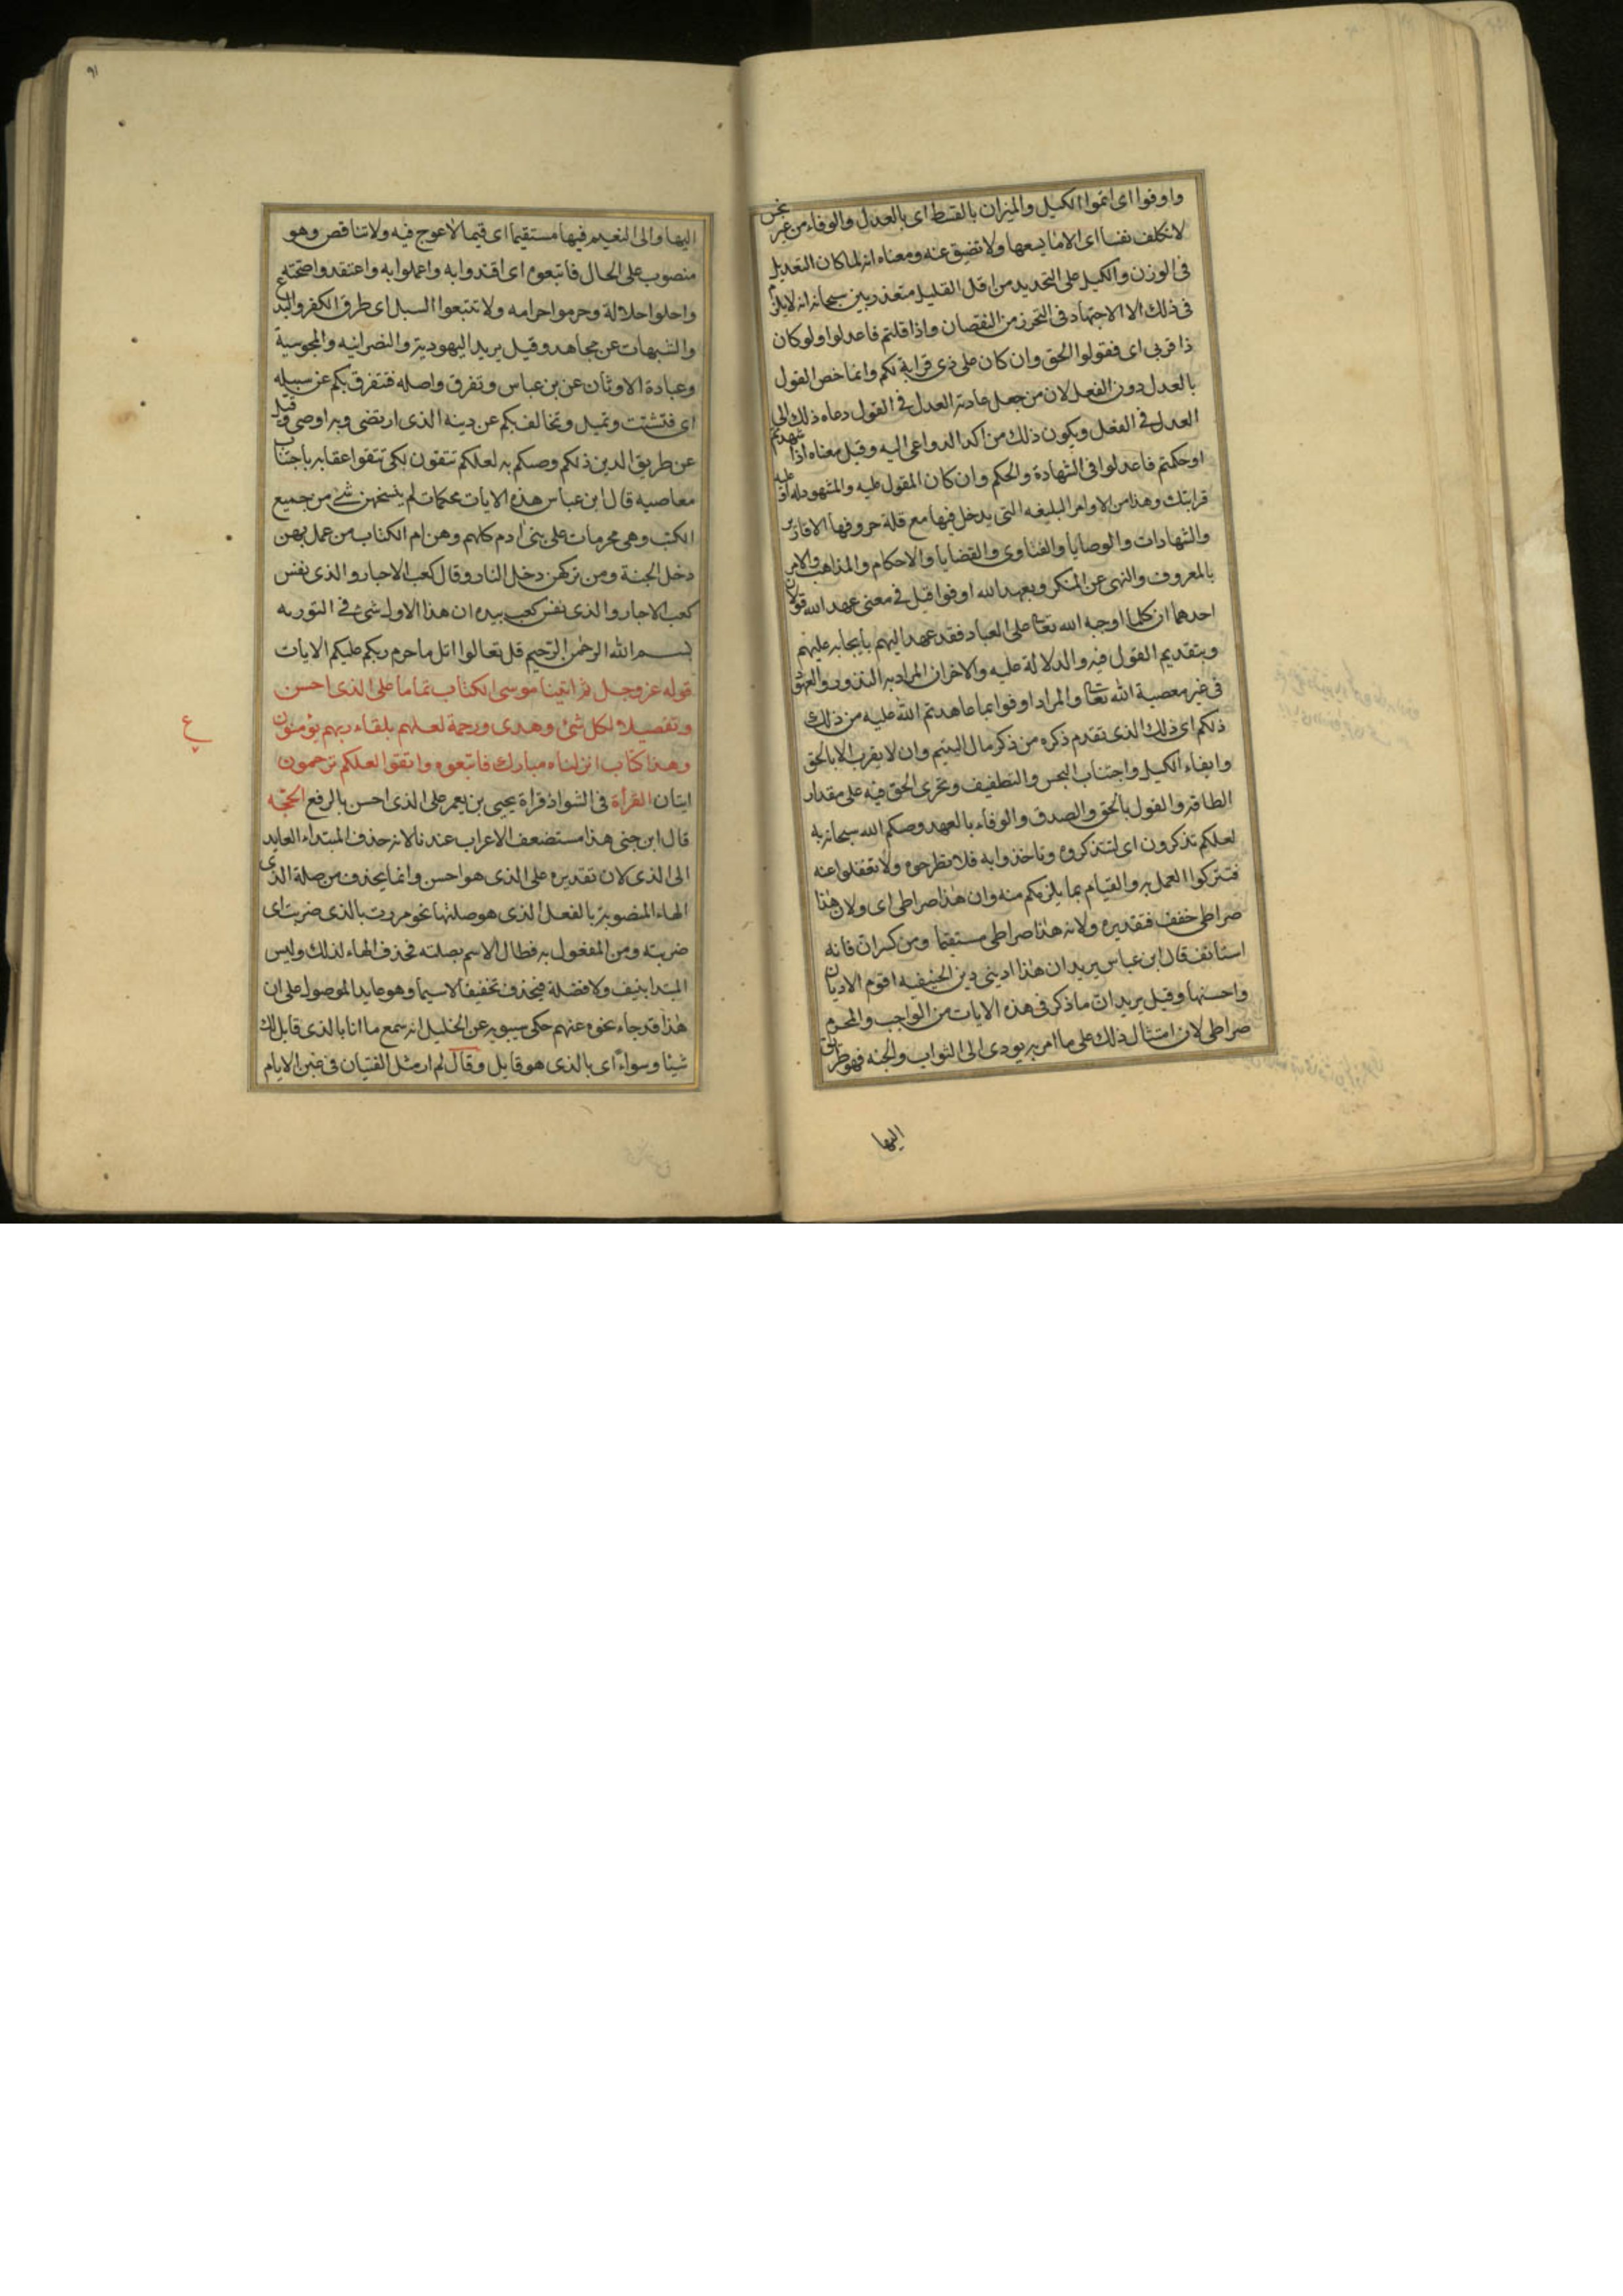 واوفوا اى اتموا الكيل والميزان بالقسط اى بالعدل والوفاء من غير بخس
لا نكلف نفسا اى الا ما يسعها ولا تضيق عنه ومعناه انه لما كان التعديل
فى الوزن والكيل على التحديد من اقل القليل متعذر بين سبحانه انه لا يلزم
فى ذلك الا الاجتهاد فى التحرز من النقصان واذا قلتم فاعدلوا ولو كان
ذا قربى اى فقولوا الحق وان كان على ذى قرابة لكم وانما خص القول
بالعدل دون الفعل لان من جعل عادته العدل فى القول دعاه ذلك الى
العدل فى الفعل ويكون ذلك من اكد الدواعى اليه وقيل معناه اذا شهدتم
او حكمتم فاعدلوا فى الشهادة والحكم وان كان المقول عليه والمشهود له او عليه
قرابتك وهذا من الاوامر البليغه التى يدخل فيها مع قلة حروفها الاقارير
والشهادات والوصايا والفتاوى والقضايا والاحكام والمذاهب والامر
بالمعروف والنهى عن المنكر وبعهد الله اوفوا قيل فى معنى عهد الله قولان
احدهما ان كلما اوجبه الله تعا على العباد فقد عهد اليهم بايجابه عليهم
وبتقديم القول فيه والدلالة عليه والاخر ان المراد به النذور والعهود
فى غير معصية الله تعا والمراد اوفوا بما عاهدتم الله عليه من ذلك
ذلكم اى ذلك الذى تقدم ذكره من ذكر مال اليتيم وان لا يقرب الا بالحق
وايفاء الكيل واجتناب البخس والتطفيف وتحرى الحق فيه على مقدار
الطاقه والقول بالحق والصدق والوفاء بالعهد وصكم الله سبحانه به
لعلكم تذكرون اى لتتذكروه وتاخذوا به فلا تطرحوه ولا تغفلوا عنه
فتتركوا العمل به والقيام بما يلزمكم منه وان هذا صراطى اى ولان هذا
صراطى خفف فتقديره ولانه هذا صراطى مستقيما ومن كسر ان فانه
استانف قال ابن عباس يريد ان هذا دينى دين الحنيفيه اقوم الاديان
واحسنها وقيل يريد ان ما ذكر فى هذه الايات من الواجب والمحرم
صراطى لان امتثال ذلك على ما امر به يودى الى الثواب والجنه فهو طريق
اليها
٩١
اليها والى النعيم فيها مستقيما اى قيما لا عوج فيه ولا تناقض وهو
منصوب على الحال فاتبعوه اى اقتدوا به واعملوا به واعتقدوا صحته
واحلوا حلاله وحرموا حرامه ولا تتبعوا السبل اى طرق الكفر والبدع
والشبهات عن مجاهد وقيل يريد اليهودية والنصرانيه والمجوسية
وعبادة الاوثان عن بن عباس وتفرق واصله فتتفرق بكم عن سبيله
اى فتشتت وتميل وتخالف بكم عن دينه الذى ارتضى وبه اوصى وقيل
عن طريق الدين ذلكم وصكم به لعلكم تتقون لكى تتقوا عقابه باجتناب
معاصيه قال ابن عباس هذه الايات محكمات لم ينسخهن شئ من جميع
الكتب وهى محرمات على بنى ادم كلهم وهن ام الكتاب من عمل بهن
دخل الجنة ومن تركهن دخل النار وقال كعب الاحبار والذى نفس
كعب الاحبار والذى نفس كعب بيده ان هذا الاول شئ فى التوريه
بسم الله الرحمن الرحيم قل تعالوا اتل ما حرم ربكم عليكم الايات
قوله عز وجل ثم اتينا موسى الكتاب تماما على الذى احسن
وتفصيلا لكل شئ وهدى ورحمة لعلهم بلقاء ربهم يؤمنون
ع
وهذا كتاب انزلناه مبارك فاتبعوه واتقوا لعلكم ترحمون
ايتان القرأة فى الشواذ قراة يحيى بن يعمر على الذى احسن بالرفع الحجه
قال ابن جنى هذا مستضعف الاعراب عندنا لانه حذف المبتداء العايد
الى الذى لان تقديره على الذى هو احسن وانما يحذف من صلة الذى
الهاء المنصوبة بالفعل الذى هو صلتها نحو مررت بالذى ضربت اى
ضربته ومن المفعول به فطال الاسم بصلته فحذف الهاء لذلك وليس
المبتدا بنيف ولا فضلة فيحذف تخفيفا لا سيما وهو عايد الموصول على ان
هذا قد جاء نحوه عنهم حكى سيبويه عن الخليل انه سمع ما انا بالذى قايل لك
شيئا وسواء اى بالذى هو قايل وقال لم ار مثل الفتيان فى غبن الايام